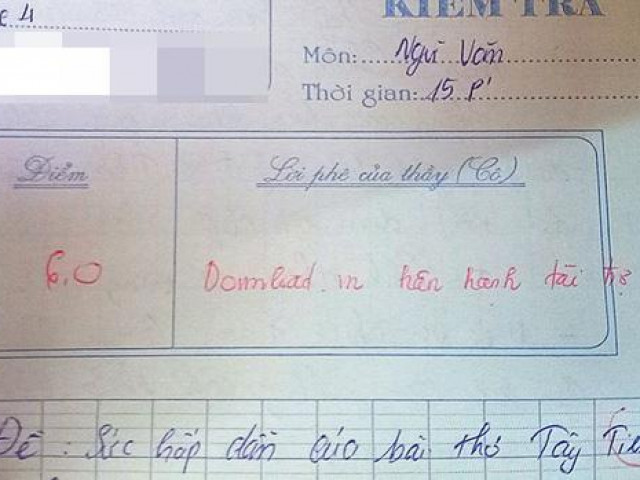 c 4
KIỂM TRA
Môn: Ngữ Văn
Thời gian: 15 p'
Điểm
Lời phê của thầy (Cô)
6.0
Download.vn hân hạnh tài trợ
Đề: Sức hấp dẫn của bài thơ Tây